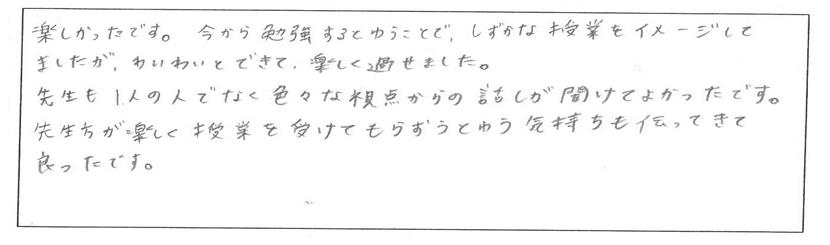 楽しかったです。今から勉強するとゆうことで、しずかな授業をイメージして
ましたが、わいわいとできて、楽しく過せました。
先生も1人の人でなく色々な視点からの話しが聞けてよかったです。
先生方が楽しく授業を受けてもらおうとゆう気持ちも伝ってきて
良ったです。